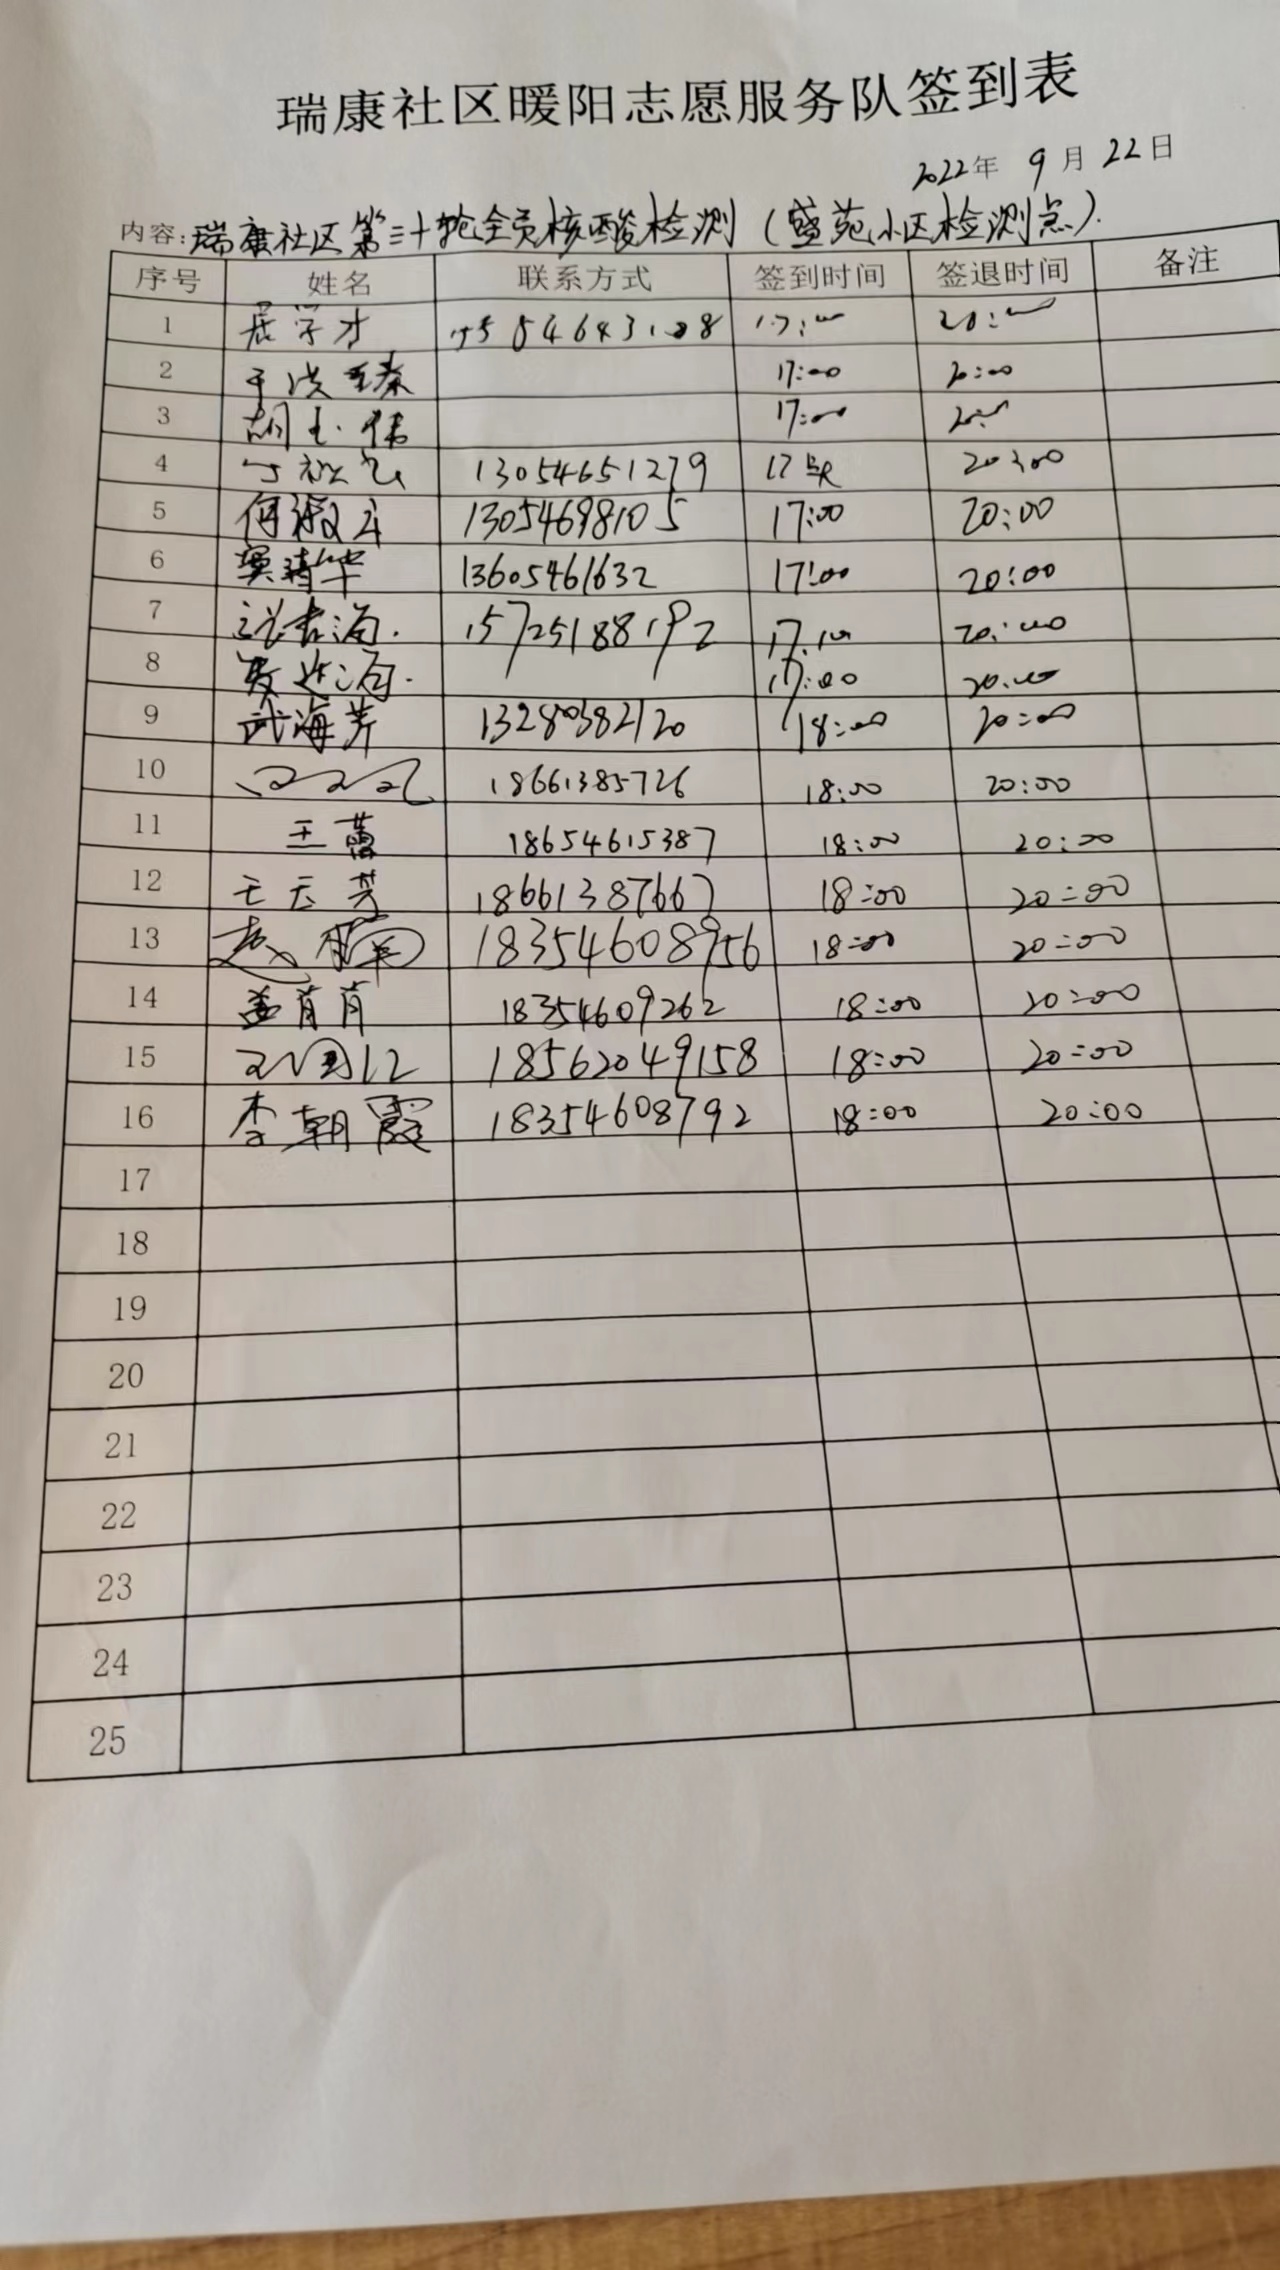 瑞康社区暖阳志愿服务队签到表
2022年 9月22日
内容:瑞康社区第三十轮全员核酸检测(盛苑小区检测点).
序号 姓名 联系方式 签到时间 签退时间 备注
1 学才 20:00
2 17:00 20:00
3 胡玉伟 17:00
4 13054651279 20:00
5 何淑 13054698105 17:00 20:00
6 窦清华 13605461632 17:00 20:00
7 15725188192 20:00
8 17:00 20:00
9 武海芳 13280382120 18:00 20:00
10 18661385726 18:00 20:00
11 王蕾 18654615387 18:00 20:00
12 王云芳 18661387667 18:00 20:00
13 18354608956 18:00 20:00
14 盖肖肖 18354609262 18:00 20:00
15 18562049158 18:00 20:00
16 李朝霞 18354608792 18:00 20:00
17
18
19
20
21
22
23
24
25